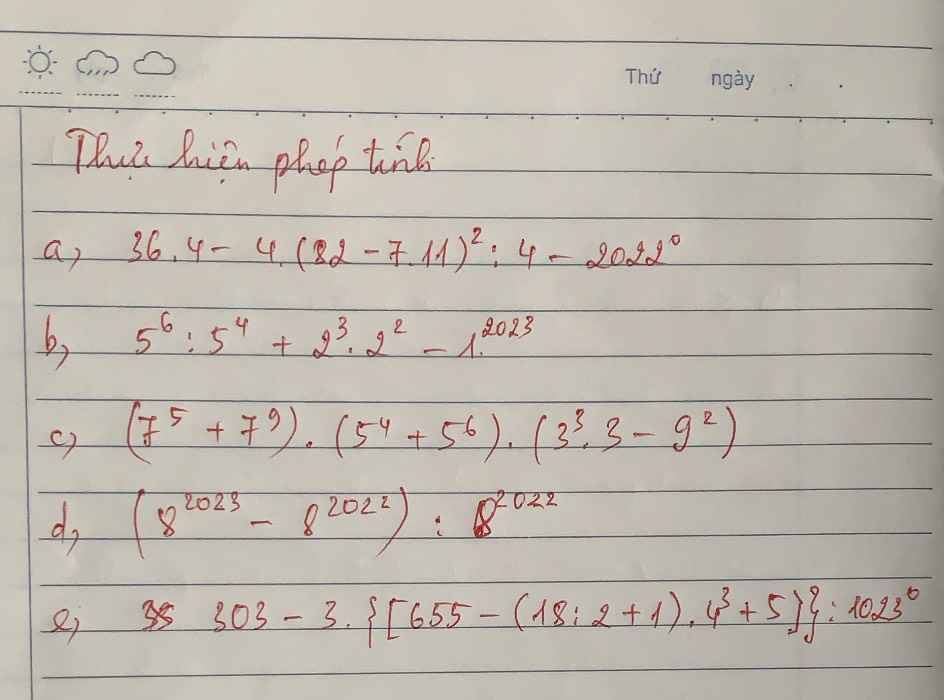 Thứ ngày . .
Thực hiện phép tính
a, 36.4 - 4.(82 - 7.11)² : 4 - 2022⁰
b, 5⁶ : 5⁴ + 2³. 2² - 1.²⁰²³
c, (7⁵ + 7⁹) . (5⁴ + 5⁶) . (3³.3 - 9²)
d, (8²⁰²³ - 8²⁰²²) : 8²⁰²²
e, 303 - 3. {[655 - (18 : 2 + 1) . 4³ + 5]} : 1023⁰